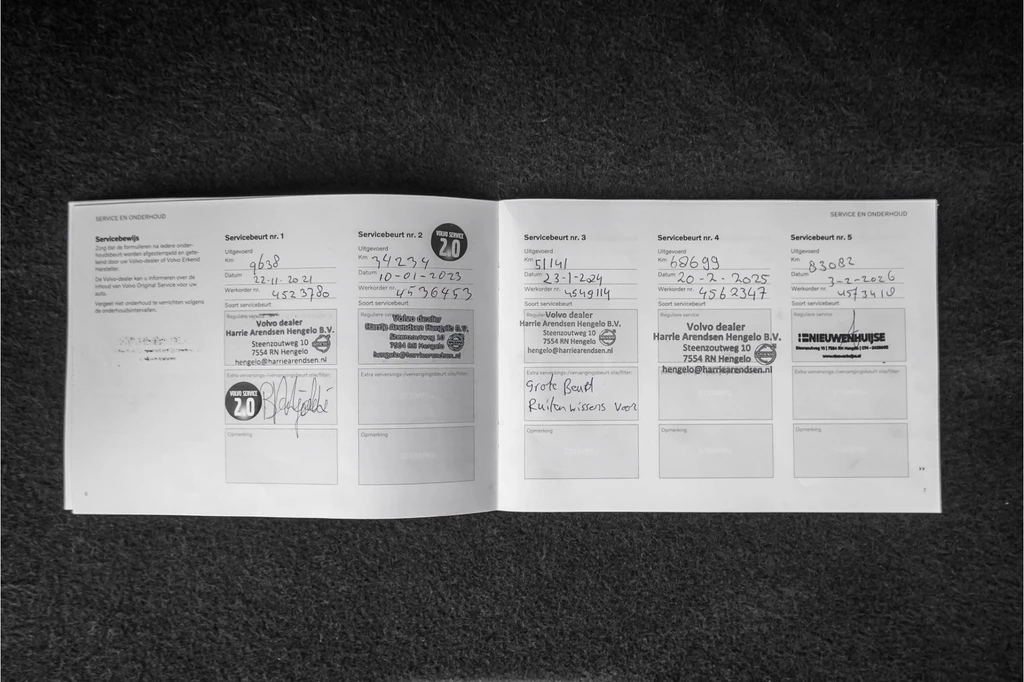 SERVICE EN ONDERHOUD
Servicebewijs
Zorg dat de formulieren na iedere onder-
houdsbeurt worden afgestempeld en gete-
kend door uw Volvo-dealer of Volvo Erkend
Hersteller.
De Volvo-dealer kan u informeren over de
inhoud van Volvo Original Service voor uw
auto.
Vergeet niet onderhoud te verrichten volgens
de onderhoudsintervallen.
6
Servicebeurt nr. 1
Uitgevoerd
Km 9638
Datum 22-11-2021
Werkorder nr. 4523780
Soort servicebeurt
Reguliere service
Volvo dealer
Harrie Arendsen Hengelo B.V.
Steenzoutweg 10
7554 RN Hengelo
hengelo@harriearendsen.nl
Extra verversings-/vervangingsbeurt olie/filter
VOLVO SERVICE
2.0
Opmerking
Servicebeurt nr. 2
VOLVO SERVICE
2.0
Uitgevoerd
Km 34234
Datum 10-01-2023
Werkorder nr. 4536453
Soort servicebeurt
Reguliere service
Volvo dealer
Harrie Arendsen Hengelo B.V.
Steenzoutweg 10
7554 RN Hengelo
hengelo@harriearendsen.nl
Extra verversings-/vervangingsbeurt olie/filter
Opmerking
SERVICE EN ONDERHOUD
Servicebeurt nr. 3
Uitgevoerd
Km 51141
Datum 23-1-2024
Werkorder nr. 4549114
Soort servicebeurt
Reguliere service
Volvo dealer
Harrie Arendsen Hengelo B.V.
Steenzoutweg 10
7554 RN Hengelo
hengelo@harriearendsen.nl
Extra verversings-/vervangingsbeurt olie/filter
Grote Beurt
Ruitenwissers Voor
Opmerking
Servicebeurt nr. 4
Uitgevoerd
Km 68699
Datum 20-2-2025
Werkorder nr. 4562347
Soort servicebeurt
Reguliere service
Volvo dealer
Harrie Arendsen Hengelo B.V.
Steenzoutweg 10
7554 RN Hengelo
hengelo@harriearendsen.nl
Opmerking
Servicebeurt nr. 5
Uitgevoerd
Km 83082
Datum 3-2-2026
Werkorder nr. 4573410
Soort servicebeurt
Reguliere service
NIEUWENHUIJSE
Steenzoutweg 10 | 7554 RN Hengelo
www.nieuwenhuijse.nl
Extra verversings-/vervangingsbeurt olie/filter
Opmerking
7